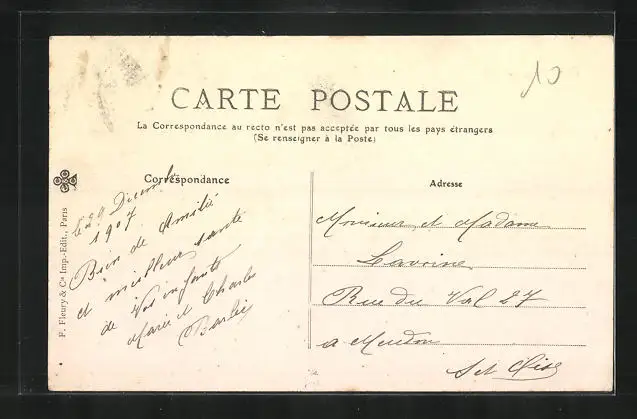 10
CARTE POSTALE
La Correspondance au recto n'est pas acceptée par tous les pays étrangers
(Se renseigner à la Poste)
Correspondance
Adresse
Le 29 Decemb
1907
Bien de Amitié
et meilleur santé
de Vos enfants
Marie et Charles
Monsieur et Madame
Lavoine
Rue du Val 27
a Meudon
Set Oise
F. Fleury & Cie Imp.-Edit., Paris